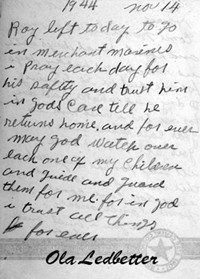 1944 nov 14
Roy left today to go
in merchant marines
i Pray each day for
his safty and trust him
in gods care tell he
returns home, and for ever
may god watch over
each one of my children
and guide and guard
them for me. for in god
i trust all things
for ever
Ola Ledbetter